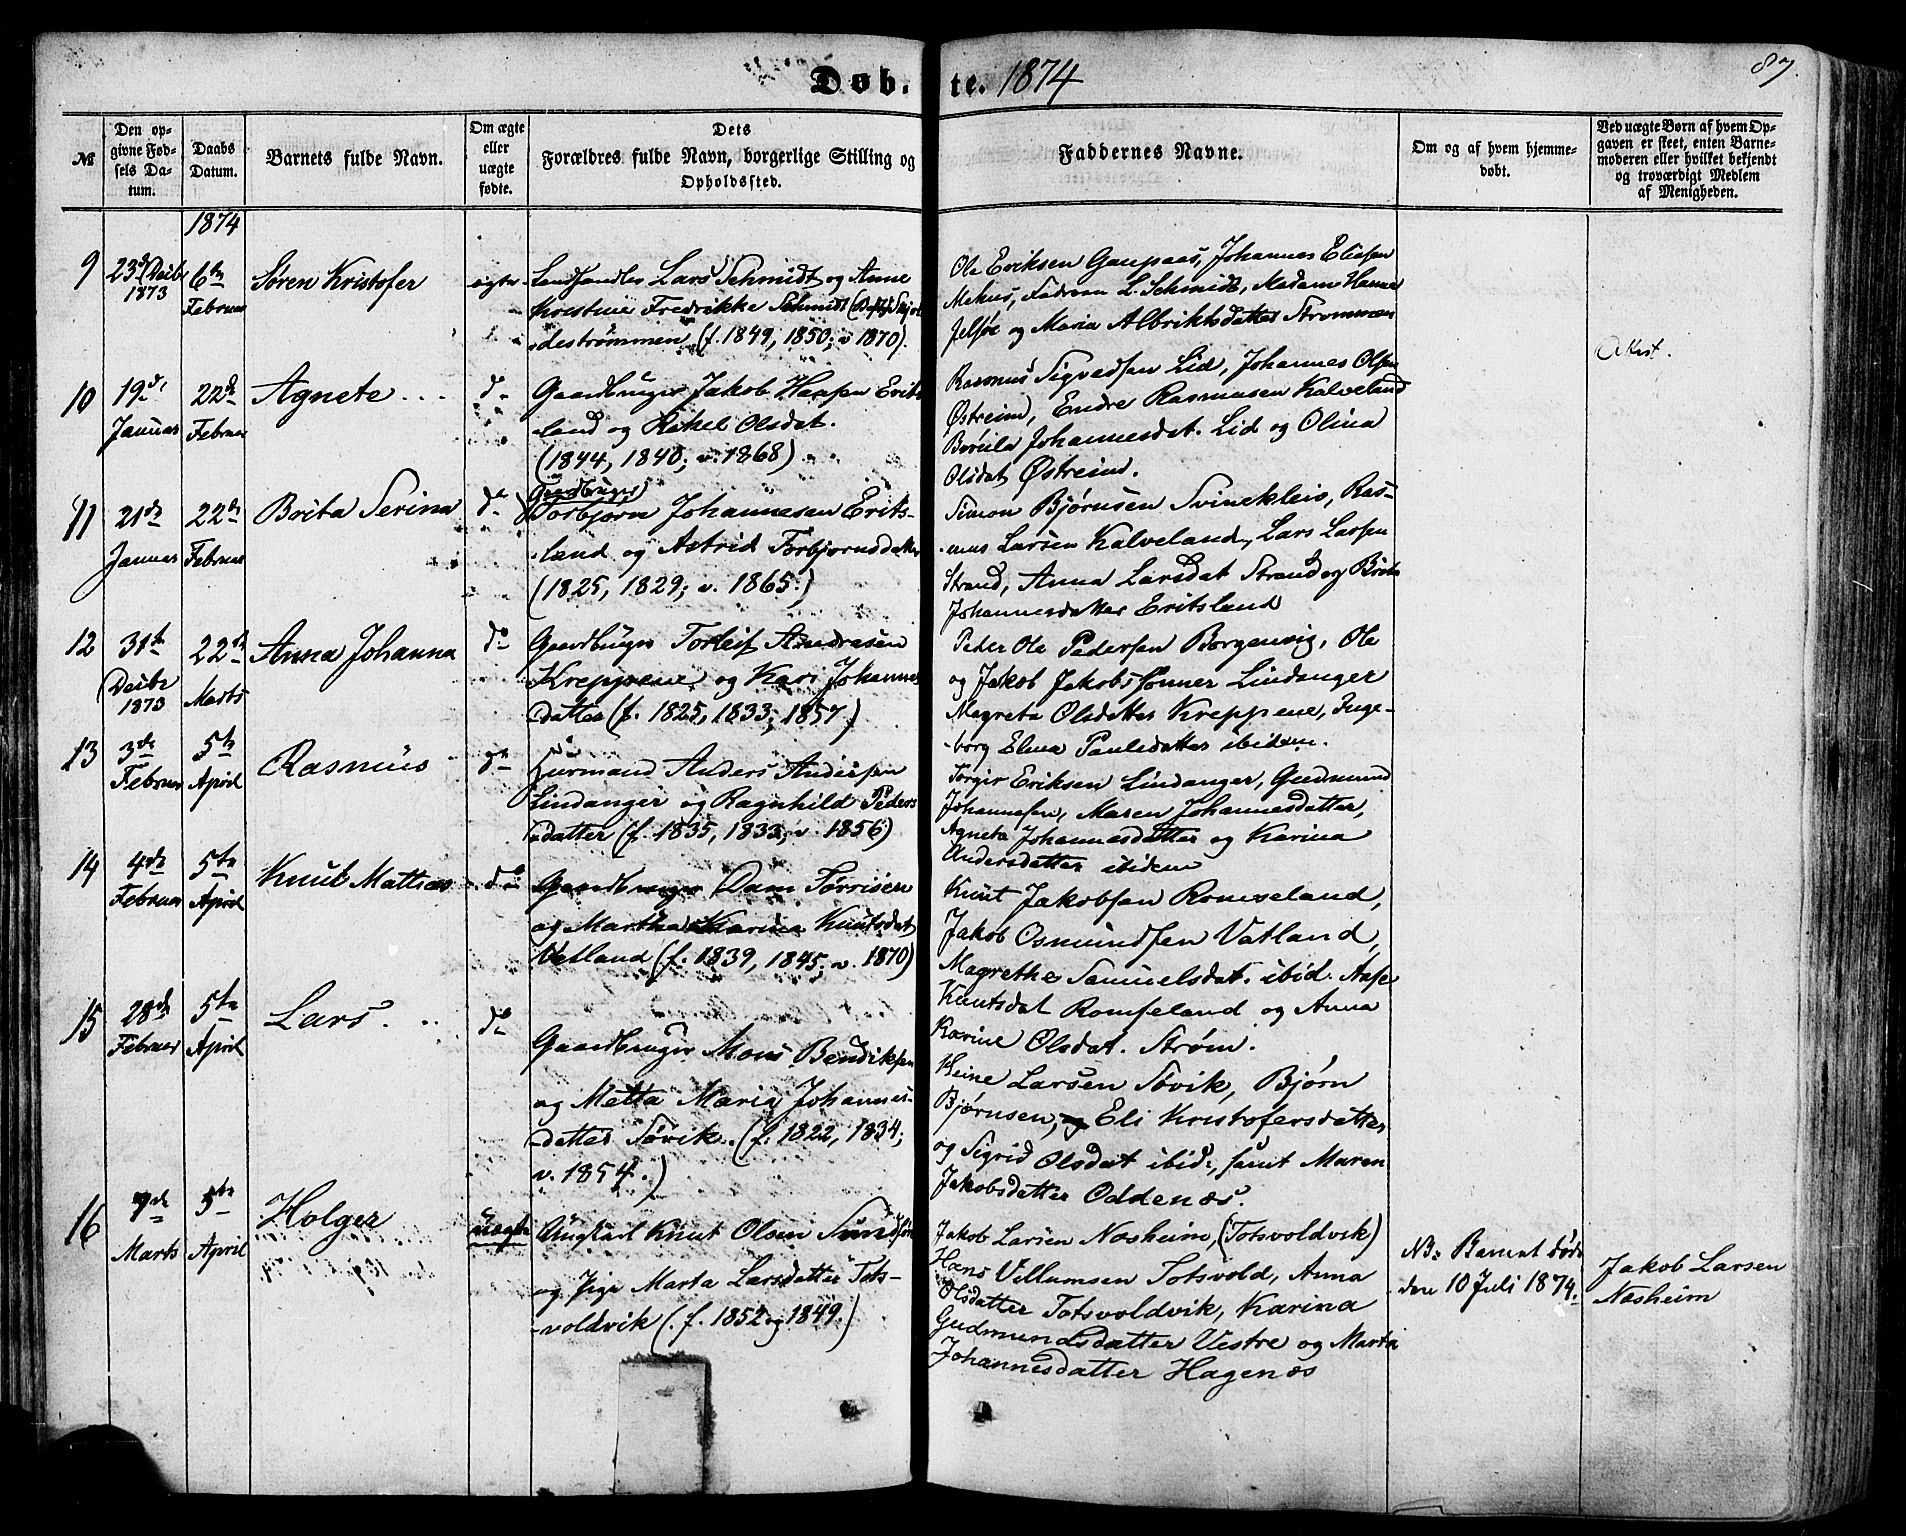 Døb. te. 1874
87.
№
Den op-
givne Fød-
sels Da-
tum.
Daabs
Datum.
Barnets fulde Navn.
Om ægte
eller
uægte
fødte.
Dets
Forældres fulde Navn, borgerlige Stilling og
Opholdssted.
Faddernes Navne.
Om og af hvem hjemme-
døbt.
Ved uægte Børn af hvem Op-
gaven er skeet, enten Barne-
moderen eller hvilket bekjendt
og troværdigt Medlem
af Menigheden.
1874
9
23de Decbr
1873
6te
Februar
Søren Kristofer
ægte
Landhandler Lars Schmidt og Anne
Kristine Fredrikke Schmidt
destrømmen (f. 1849, 1850; v 1870).
Ole Eriksen Gaupaas, Johannes Eliasen
Mehus, Fadrson L. Schmidt, Madam Hanna
Jelsøe og Maria Albriktsdatter Strommen
Attest.
10
19de
Januar
22de
Februar
Agnete
do
Gaardbruger Jakob Hansen Erits-
land og Rakel Olsdat.
(1844, 1840; v. 1868)
Rasmus Sigvedsen Lid, Johannes Olsen
Østreim, Endre Rasmusen Kalveland
Borúla Johannesdat. Lid og Olina
Olsdat Østreim.
11
21de
Januar
22de
Februar
Brita Serina
do
(Gaardbruger)
Torbjørn Johannesen Erits-
land og Astrid Torbjørnsdatter
(1825, 1829; v. 1865.)
Simon Bjørnsen Svinekleiv, Ras-
mus Larsen Kalveland, Lars Larsen
Strand, Anna Larsdat Strand og Brita
Johannesdatter Eritsland
12
31te
Decbr
1873
22de
Marts
Anna Johanna
do
Gaardbruger Torleif Andreasen
Kreppene og Kari Johannes
datter (f. 1825, 1833; 1857)
Peder Ole Pedersen Borgenvig, Ole
og Jakob Jakobssønner Lindanger
Magreta Olsdatter Kreppene, Inge-
borg Elma Paulsdatter ibidem.
13
3de
Februar
5te
April
Rasmus
do
Huusmand Anders Andersen
Lindanger og Ragnhild Peders
datter (f. 1835, 1833; v. 1856)
Torgir Eriksen Lindanger, Gudmund
Johannesen, Maren Johannesdatter,
Agneta Johannesdatter og Karina
Andersdatter ibidem
14
4de
Februar
5te
April
Knut Mathias
do
Gaardbruger Dam Tørrisen
og Martha Karina Knutsdat
Vatland (f. 1839, 1845; v. 1870)
Knut Jakobsen Romseland,
Jakob Osmundsen Vatland,
Magrethe Samuelsdat. ibid. Aase
Knutsdat Romseland og Anna
Karine Olsdat. Strøm.
15
28de
Februar
5te
April
Lars
do
Gaardbruger Mons Bendiksen
og Metta Maria Johannes-
datter Søvik. (f. 1822, 1834;
v. 1854.)
Heine Larsen Søvik, Bjørn
Bjørnsen, og Eli Kristofersdatter
og Sigrid Olsdat ibid:, samt Maren
Jakobsdatter Oddenæs.
16
7de
Marts
5te
April
Holger
uægte
Ungkarl Knut Olsen Sundfør
og Pige Marta Larsdatter Tots-
voldvik (. f. 1852 og 1849.)
Jakob Larsen Næsheim, (Totsvoldvik)
Hans Villumsen Totsvold, Anna
Olsdatter Totsvoldvik, Karina
Gudmundsdatter Vestre og Marta
Johannesdatter Hagenæs
NB: Barnet døde
den 10 Juli 1874.
Jakob Larsen
Næsheim